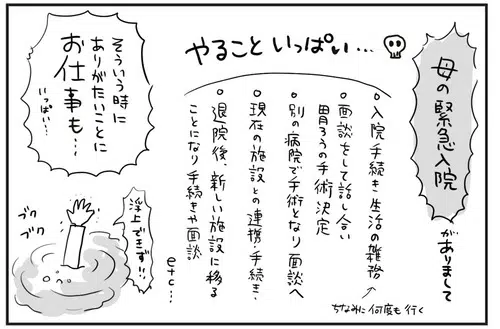 母の緊急入院
がありまして
やることいっぱい…
・入院手続き・生活の雑務
ちなみに何度も行く
・面談をして話し合い
胃ろうの手術決定
・別の病院で手術となり面談へ
・現在の施設との連携・手続き・
・退院後、新しい施設に移る
ことになり手続きや面談
etc…
そういう時に
ありがたいことに
お仕事も…
いっぱい…
浮上できず!!
ブク
ブク
ブク
ブク